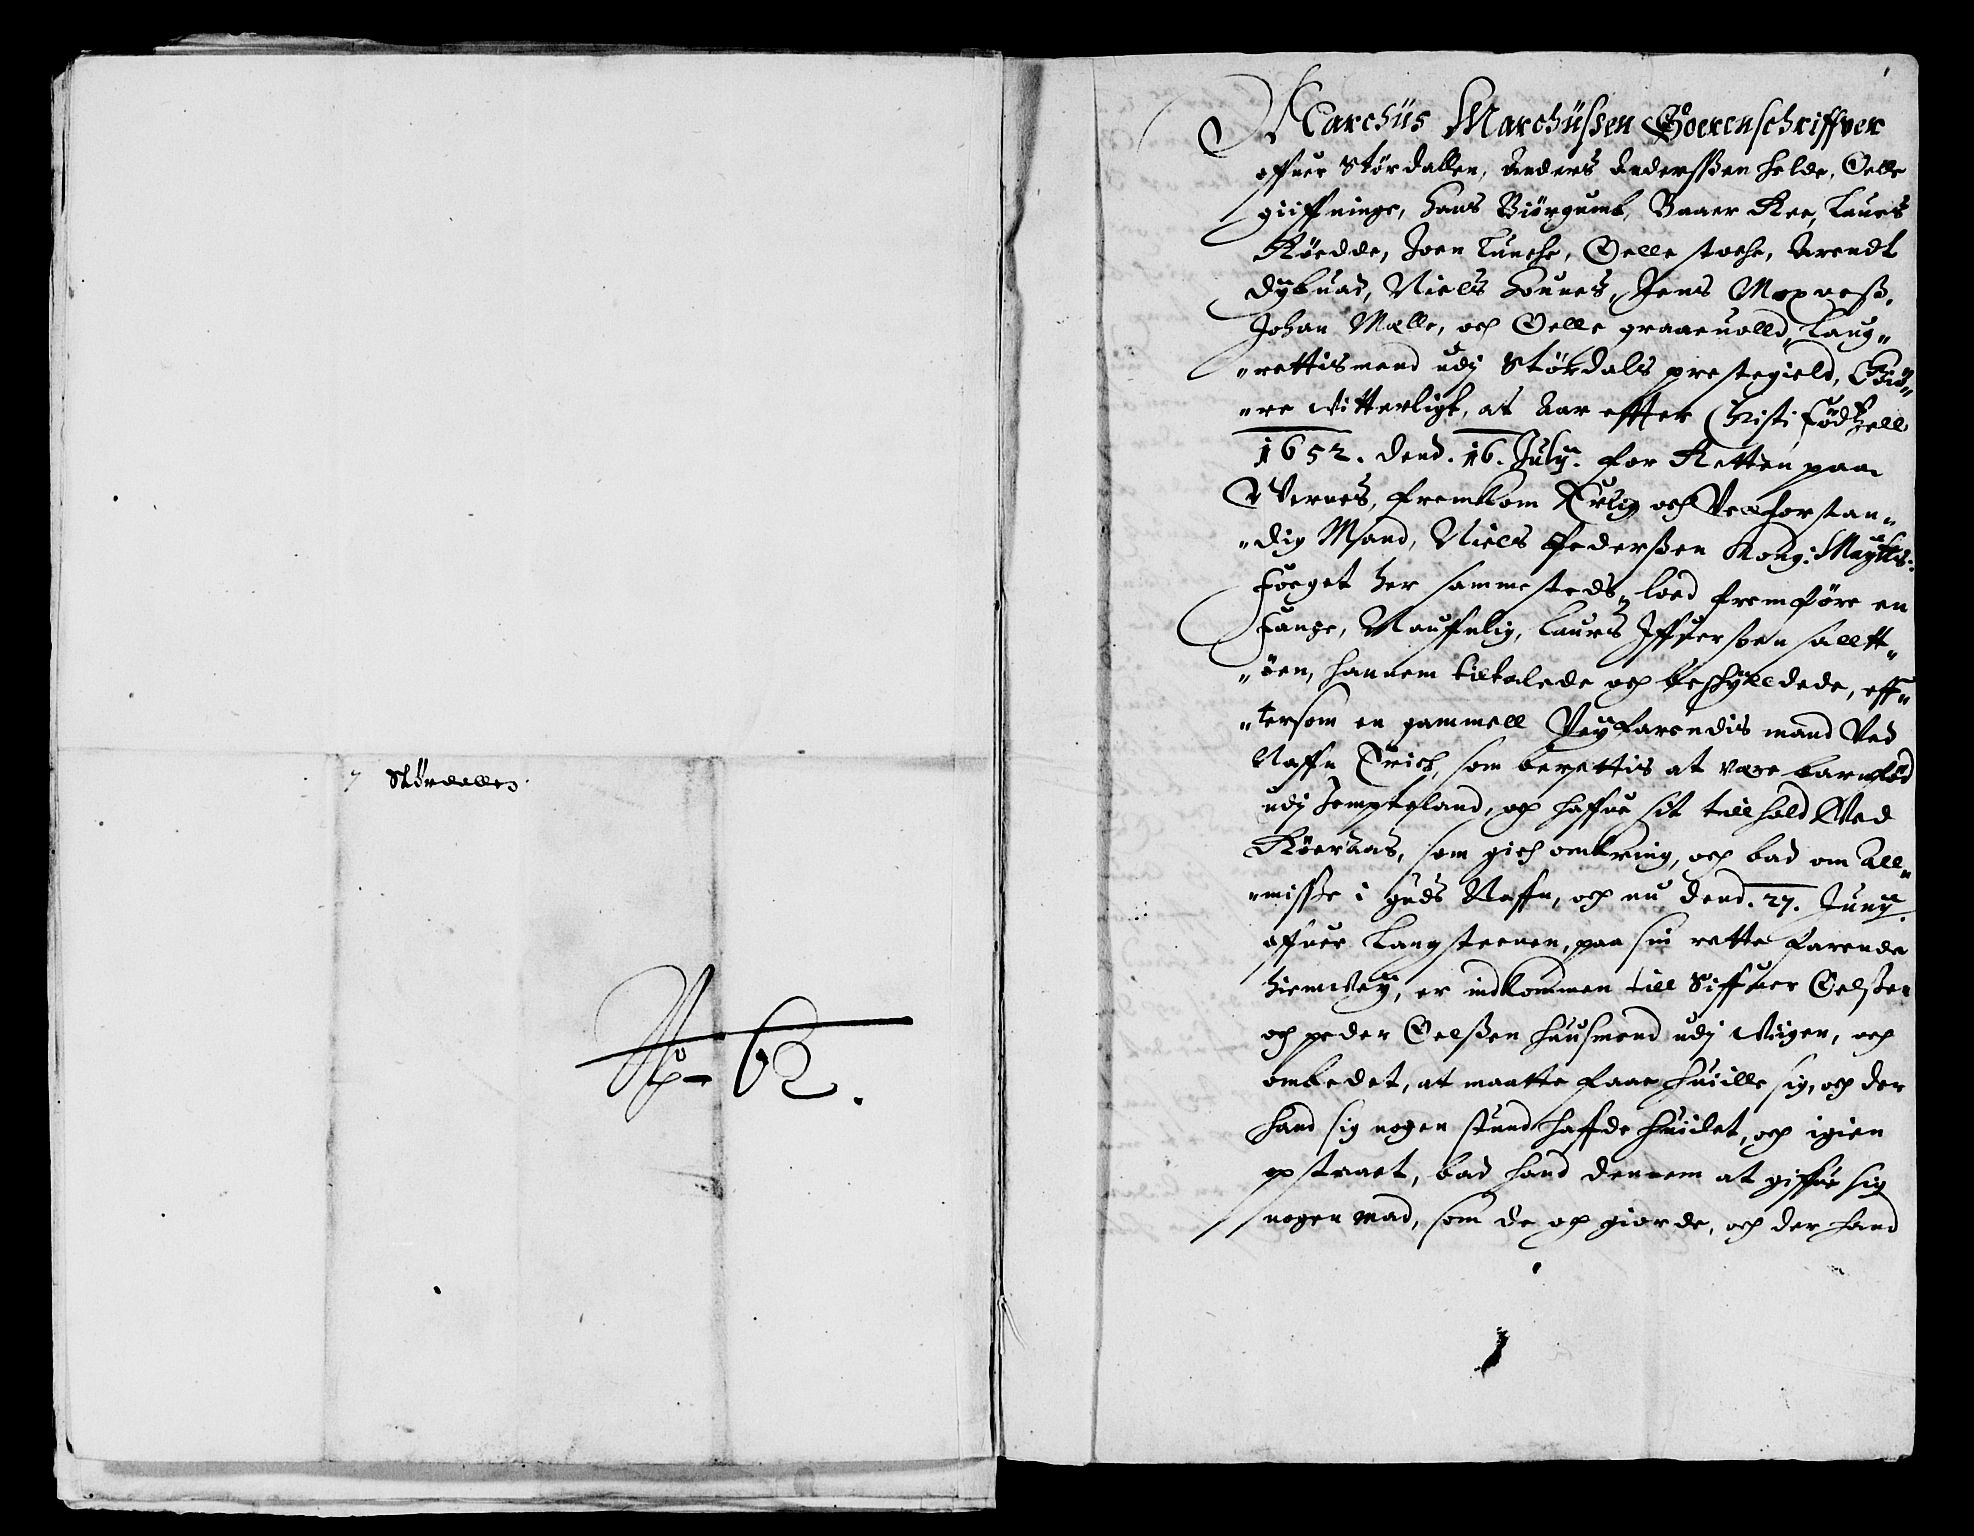 Stördallen
No 62.
Marchüs Marchüssen Soerenschriffver
offuer Stördallen, Anders Anderssøen Helde, Oelle
giiffninge, Hans Biörgumb, Baaer Ree, Laues
Röedde, Joen Lunche, Oelle stoche, Arendt
Dybuad, Niels Hounes, Jens Moxness,
Johan Mælle, och Oelle graaeuolld, Laug„
„rettismend udj Stördals prestegield, Giö„
„re witterligt, at Aar effter Christi födtzell
1652. dend. 16. July. for Retten paa
Wernes, fremkom Erlig och Velforstan„
„dig Mand, Niels Pedersøen Kong: Maytts:
Foeget her sammesteds, loed fremføre en
Fange, Naufnlig, Laurs Iffuersøen salltt„
„öen, hannem tiltalede och beschylldede, eff„
„tersom en gammell Veyfarendis mand Ved
Naffn Erich, som berettis at være barnföd
udj Jempteland, och haffue sit tillhold Ved
Röeraas, som gich omkring, och bad om All„
„misse i guds Naffn, och nu dend. 27. Juny.
offuer Langsteenen, paa sin rette farende
hiemVey, er indkommen till Siffuer Oelssøen
och peder Oelssøen huusmend udj Wigen, och
ombedet, at maatte faae huille sig, och der
hand sig nogen stund haffde huilet, och igien
opstaaet, bad hand dennem at giffue sig
nogen mad, som de och giorde, och der hand